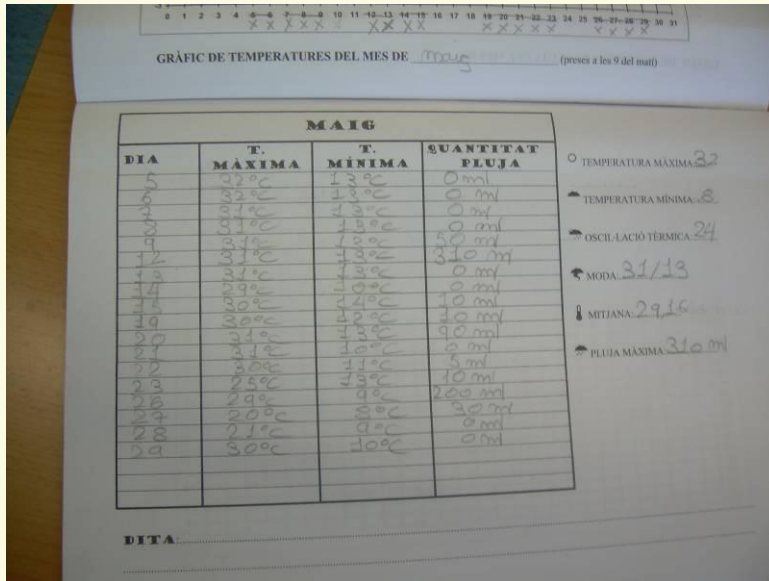 0 1 2 3 4 5 6 7 8 9 10 11 12 13 14 15 16 17 18 19 20 21 22 23 24 25 26 27 28 29 30 31
GRÀFIC DE TEMPERATURES DEL MES DE maig (preses a les 9 del matí)
MAIG
DIA T. MÀXIMA T. MÍNIMA QUANTITAT PLUJA
5 32°C 13°C 0 ml
6 32°C 13°C 0 ml
7 31°C 13°C 0 ml
8 31°C 0 ml
9 31°C 50 ml
12 31°C 13°C 310 ml
13 31°C 13°C 0 ml
14 29°C 10°C 0 ml
15 30°C 14°C 10 ml
19 30°C 12°C 10 ml
20 31°C 13°C 90 ml
21 31°C 10°C 0 ml
22 30°C 11°C 5 ml
23 25°C 13°C 10 ml
26 29°C 9°C 200 ml
27 20°C 8°C 30 ml
28 21°C 9°C 0 ml
29 30°C 10°C 0 ml
TEMPERATURA MÀXIMA: 32
TEMPERATURA MÍNIMA: 8
OSCIL·LACIÓ TÈRMICA: 24
MODA: 31/13
MITJANA: 29,16
PLUJA MÀXIMA: 310 ml
DITA: